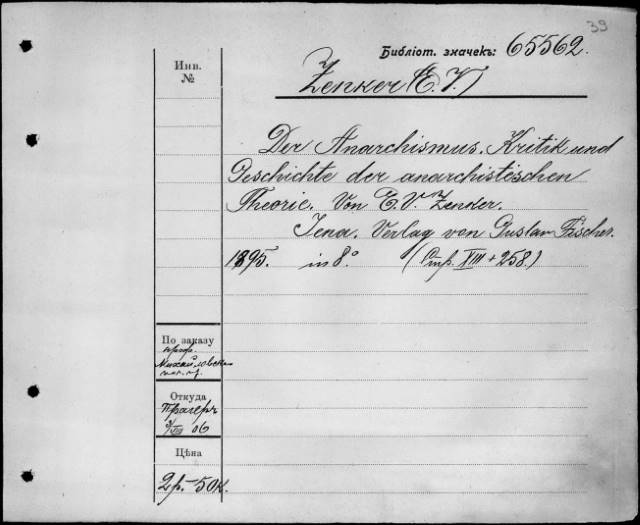 39
Библіот. значекъ: 65562.
Инв.
№
Zenker (E. V.)
Der Anarchismus. Kritik und
Geschichte der anarchistischen
Theorie. Von E. V. Zenker.
Jena. Verlag von Gustav Fischer.
1895. in 8.° (Стр. XIII + 258.)
По заказу
проф.
Михайловск
Откуда
Прагеръ
06
Цѣна
2 р. 50 к.